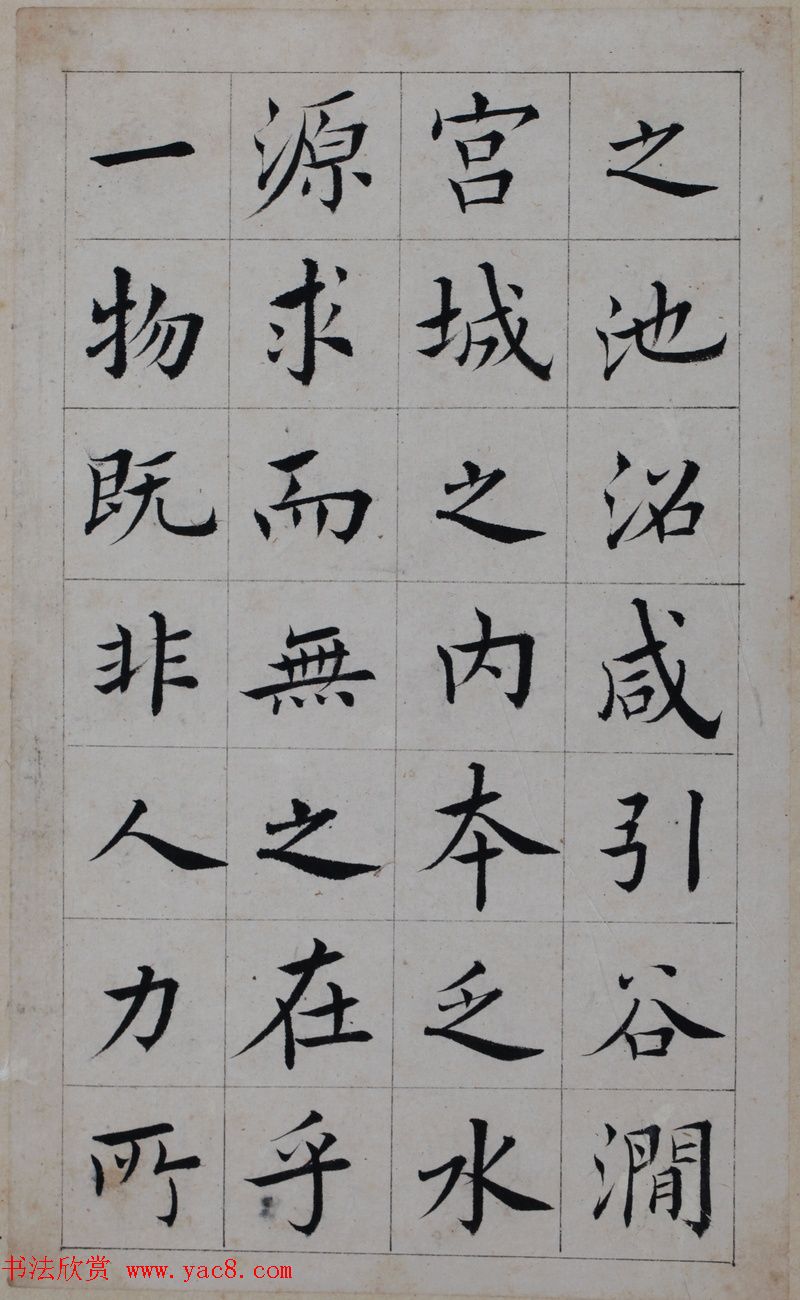 之池沼咸引谷澗
宫城之内本乏水
源求而無之在乎
一物既非人力所
书法欣赏 www.yac8.com